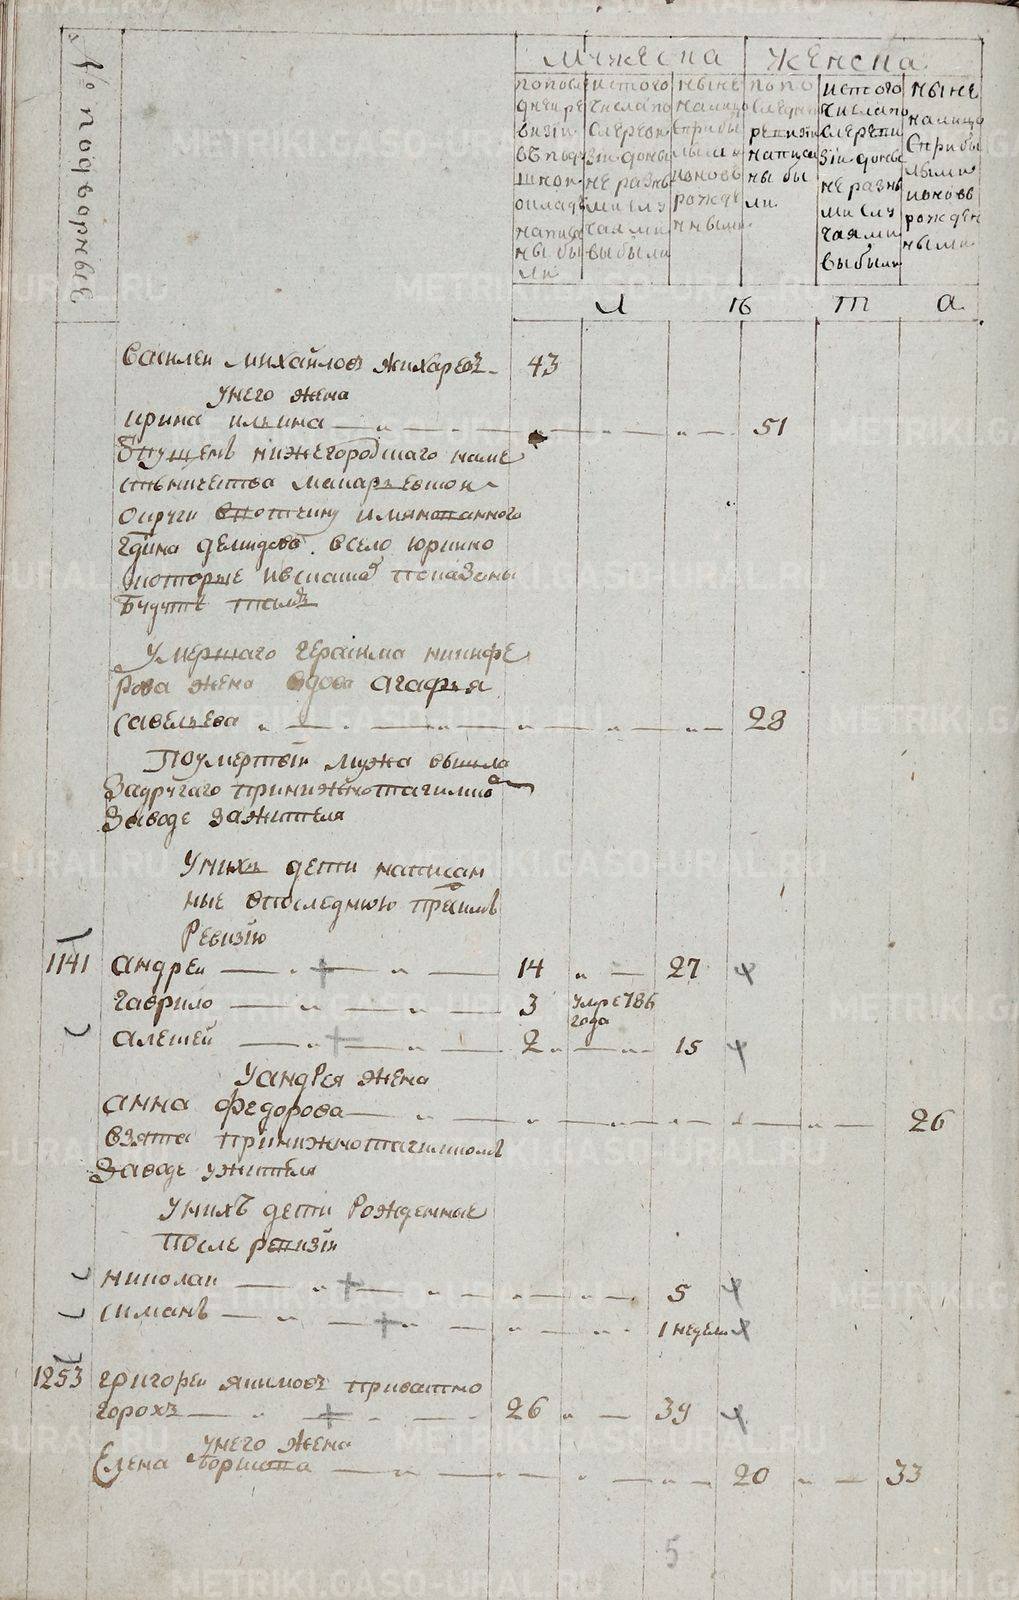 № подворные
мужеска
женска
по последней ревизии в подушном окладе написаны были
ис того числа после ревизии до ныне разными случаями выбыли
ныне налицо с прибылыми и новорожденными
по последней ревизии написаны были
ис того числа после ревизии до ныне разными случаями выбыли
ныне налицо с прибылыми и новорожденными
л ѣ т а
Василеи Михайловъ Жихаревъ 43
у него жена
Ирина Ильина 51
отпущенъ нижегородскаго наме
стьничества макарьевской
округи вотчину имянованного
гдина демидова в село юрино
которые
будутъ тамъ
умершаго герасима никифе
рова жена вдова агафья
савельева 28
по умертвии мужа вышла
за другаго при нижнотагилско
заводе за жителя
у нихъ дети написан
ные в последнюю пред симъ
ревизию
1141 андреи 14 27
гаврило 3 умре 786
года
алексеи 2 15
у андрея жена
анна федорова 26
взята при нижнотагилскомъ
заводе у жителя
у нихъ дети рожденные
после ревизии
николаи 5
симанъ 1 недели
1253 григореи якимовъ приватно
горохъ 26 39
у него жена
Елена борисова 20 33
5
METRIKI.GASO-URAL.RU